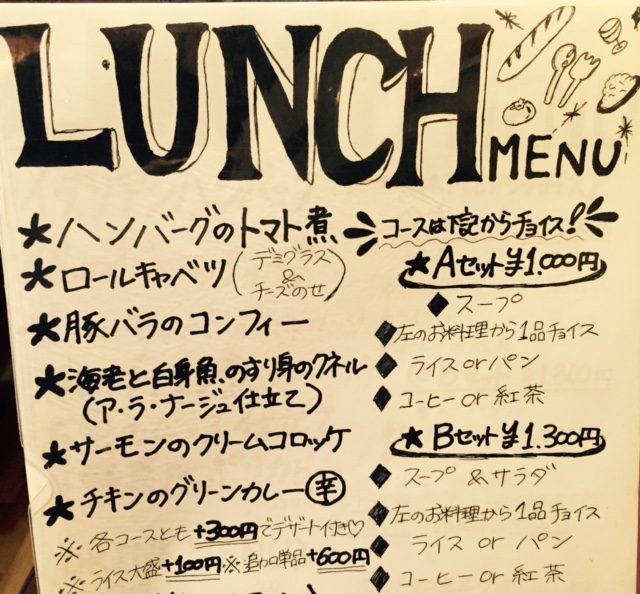 LUNCH
MENU
★ハンバーグのトマト煮
★ロールキャベツ(デミグラス&チーズのせ)
★豚バラのコンフィー
★海老と白身魚のすり身のクネル
(ア・ラ・ナージュ仕立て)
★サーモンのクリームコロッケ
★チキンのグリーンカレー㊔
※各コースとも+300円でデザート付き♡
※ライス大盛+100円※追加単品+600円
コースは下記からチョイス!
★Aセット¥1.000円
◆スープ
◆左のお料理から1品チョイス
◆ライスorパン
◆コーヒーor紅茶
★Bセット¥1.300円
◆スープ&サラダ
◆左のお料理から1品チョイス
◆ライスorパン
◆コーヒーor紅茶